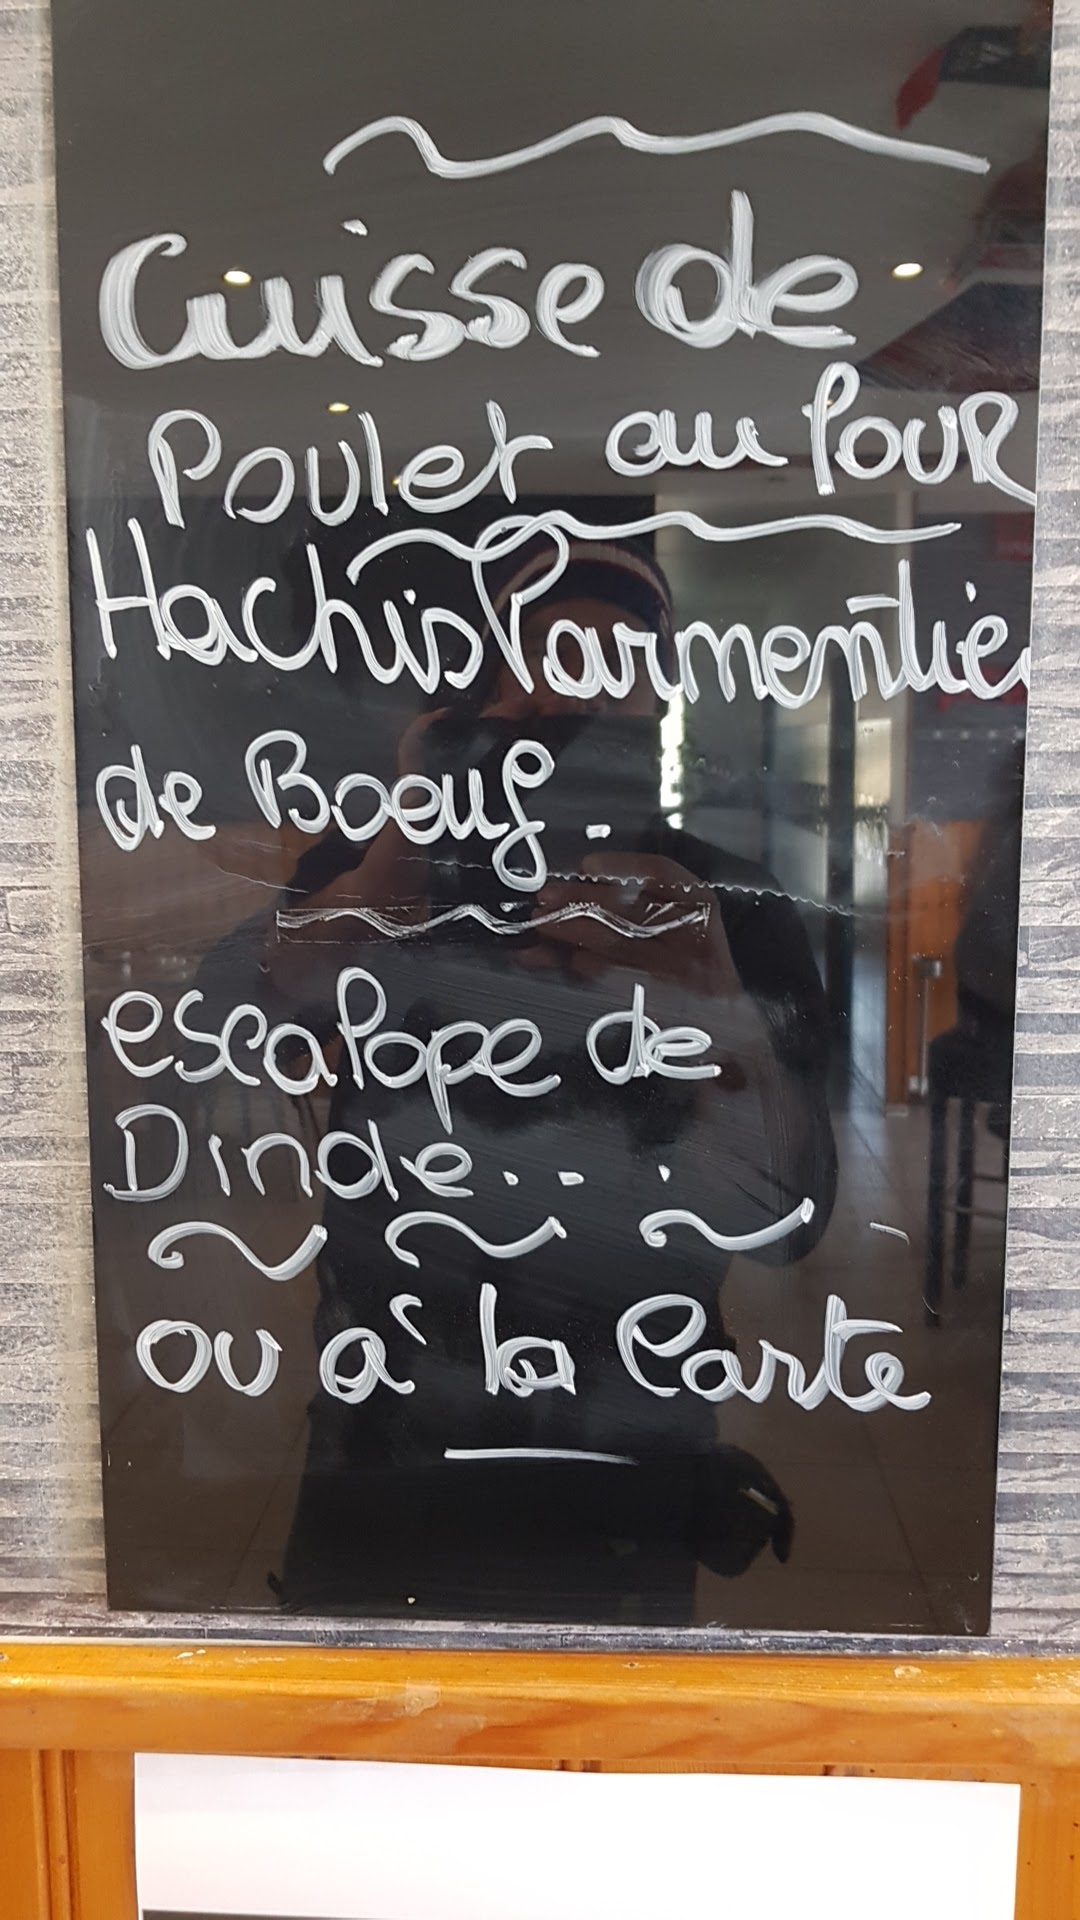 Cuisse de
Poulet au Pour
Hachis Parmentier
de Boeuf.
escalope de
Dinde...
ou à la Carte